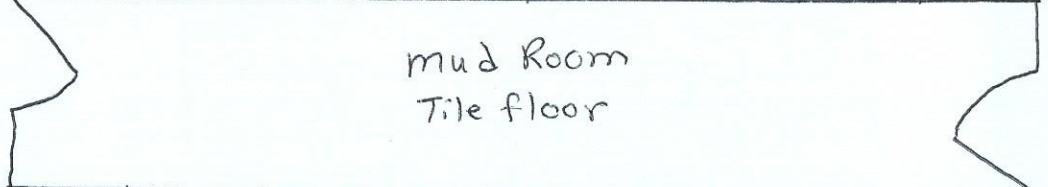 Mud Room
Tile floor